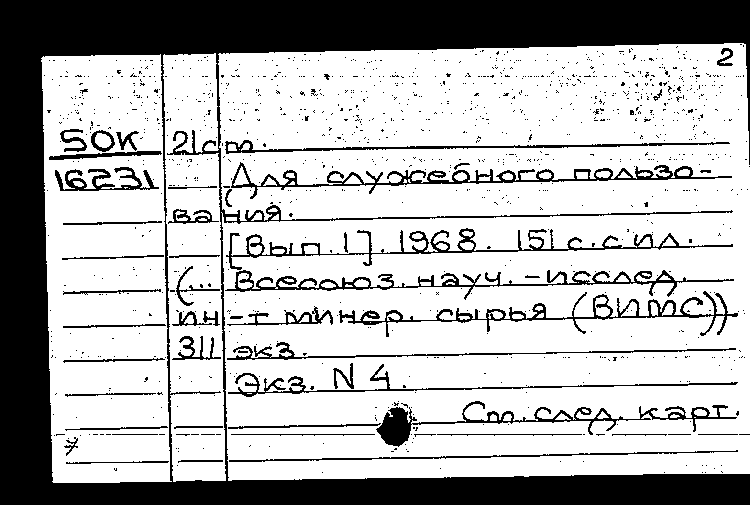 2
50К 21 см.
16231 Для служебного пользо-
вания.
[Вып. 1]. 1968. 151 с. с ил.
(... Всесоюз. науч. -исслед.
ин-т минер. сырья (ВИМС)).
311 экз.
Экз. N 4.
См. след. карт.
7